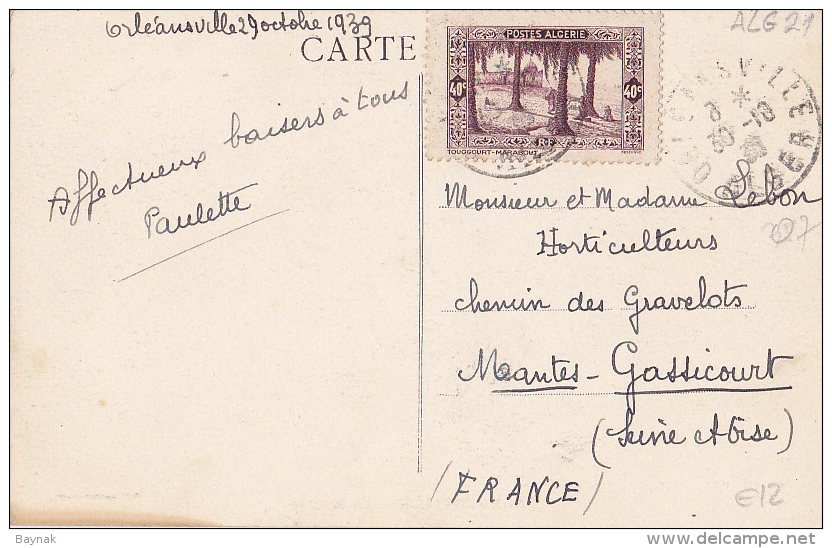 Orléansville 29 octobre 1939
CARTE
ALG 21
POSTES ALGERIE
40c 40c
TOUGGOURT-MARABOUT
RF
ORLEANSVILLE
ALGER
Affectueux baisers à tous
Paulette
Monsieur et Madame Lebon
Horticulteurs
chemin des Gravelots
Mantes-Gassicourt
(Seine et Oise)
(FRANCE)
E12
Baynak
www.delcampe.net